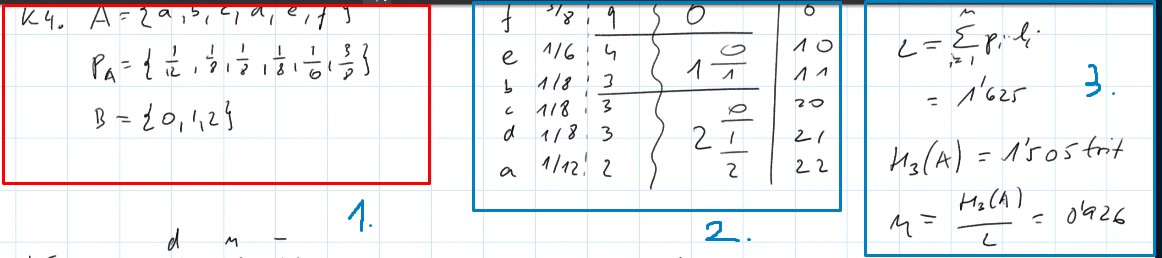 K4. A = {a, b, c, d, e, f}
P_A = {1/12, 1/8, 1/8, 1/8, 1/6, 3/8}
B = {0, 1, 2}
1.
f 3/8 9 0 0
e 1/6 4 1 0 10
b 1/8 3 1 11
c 1/8 3 2 0 20
d 1/8 3 1 21
a 1/12 2 2 22
2.
L = Σ p_i · l_i
n
i=1
= 1'625
H_3(A) = 1'505 trit
η = H_3(A) / L = 0'926
3.
d